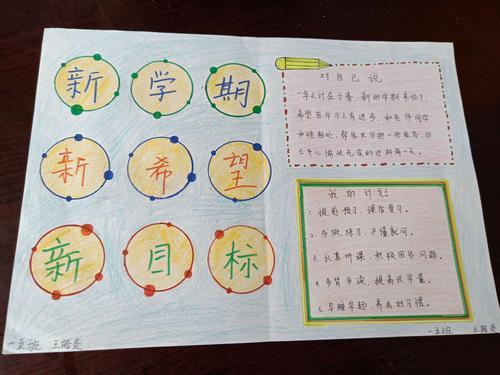 新学期
新希望
新目标
对自己说
一年之计在于春,新的学期来临了,
希望在学习上有进步,和老师同学
和睦相处,帮家长分担一些家务,自
己开心愉快充实的过好每一天。
我的计划
1. 提前预习,课后复习。
2. 多做练习,不懂就问。
3. 认真听课,积极回答问题。
4. 多背多读,提高识字量。
5. 早睡早起,养成好习惯。
一五班
一五班